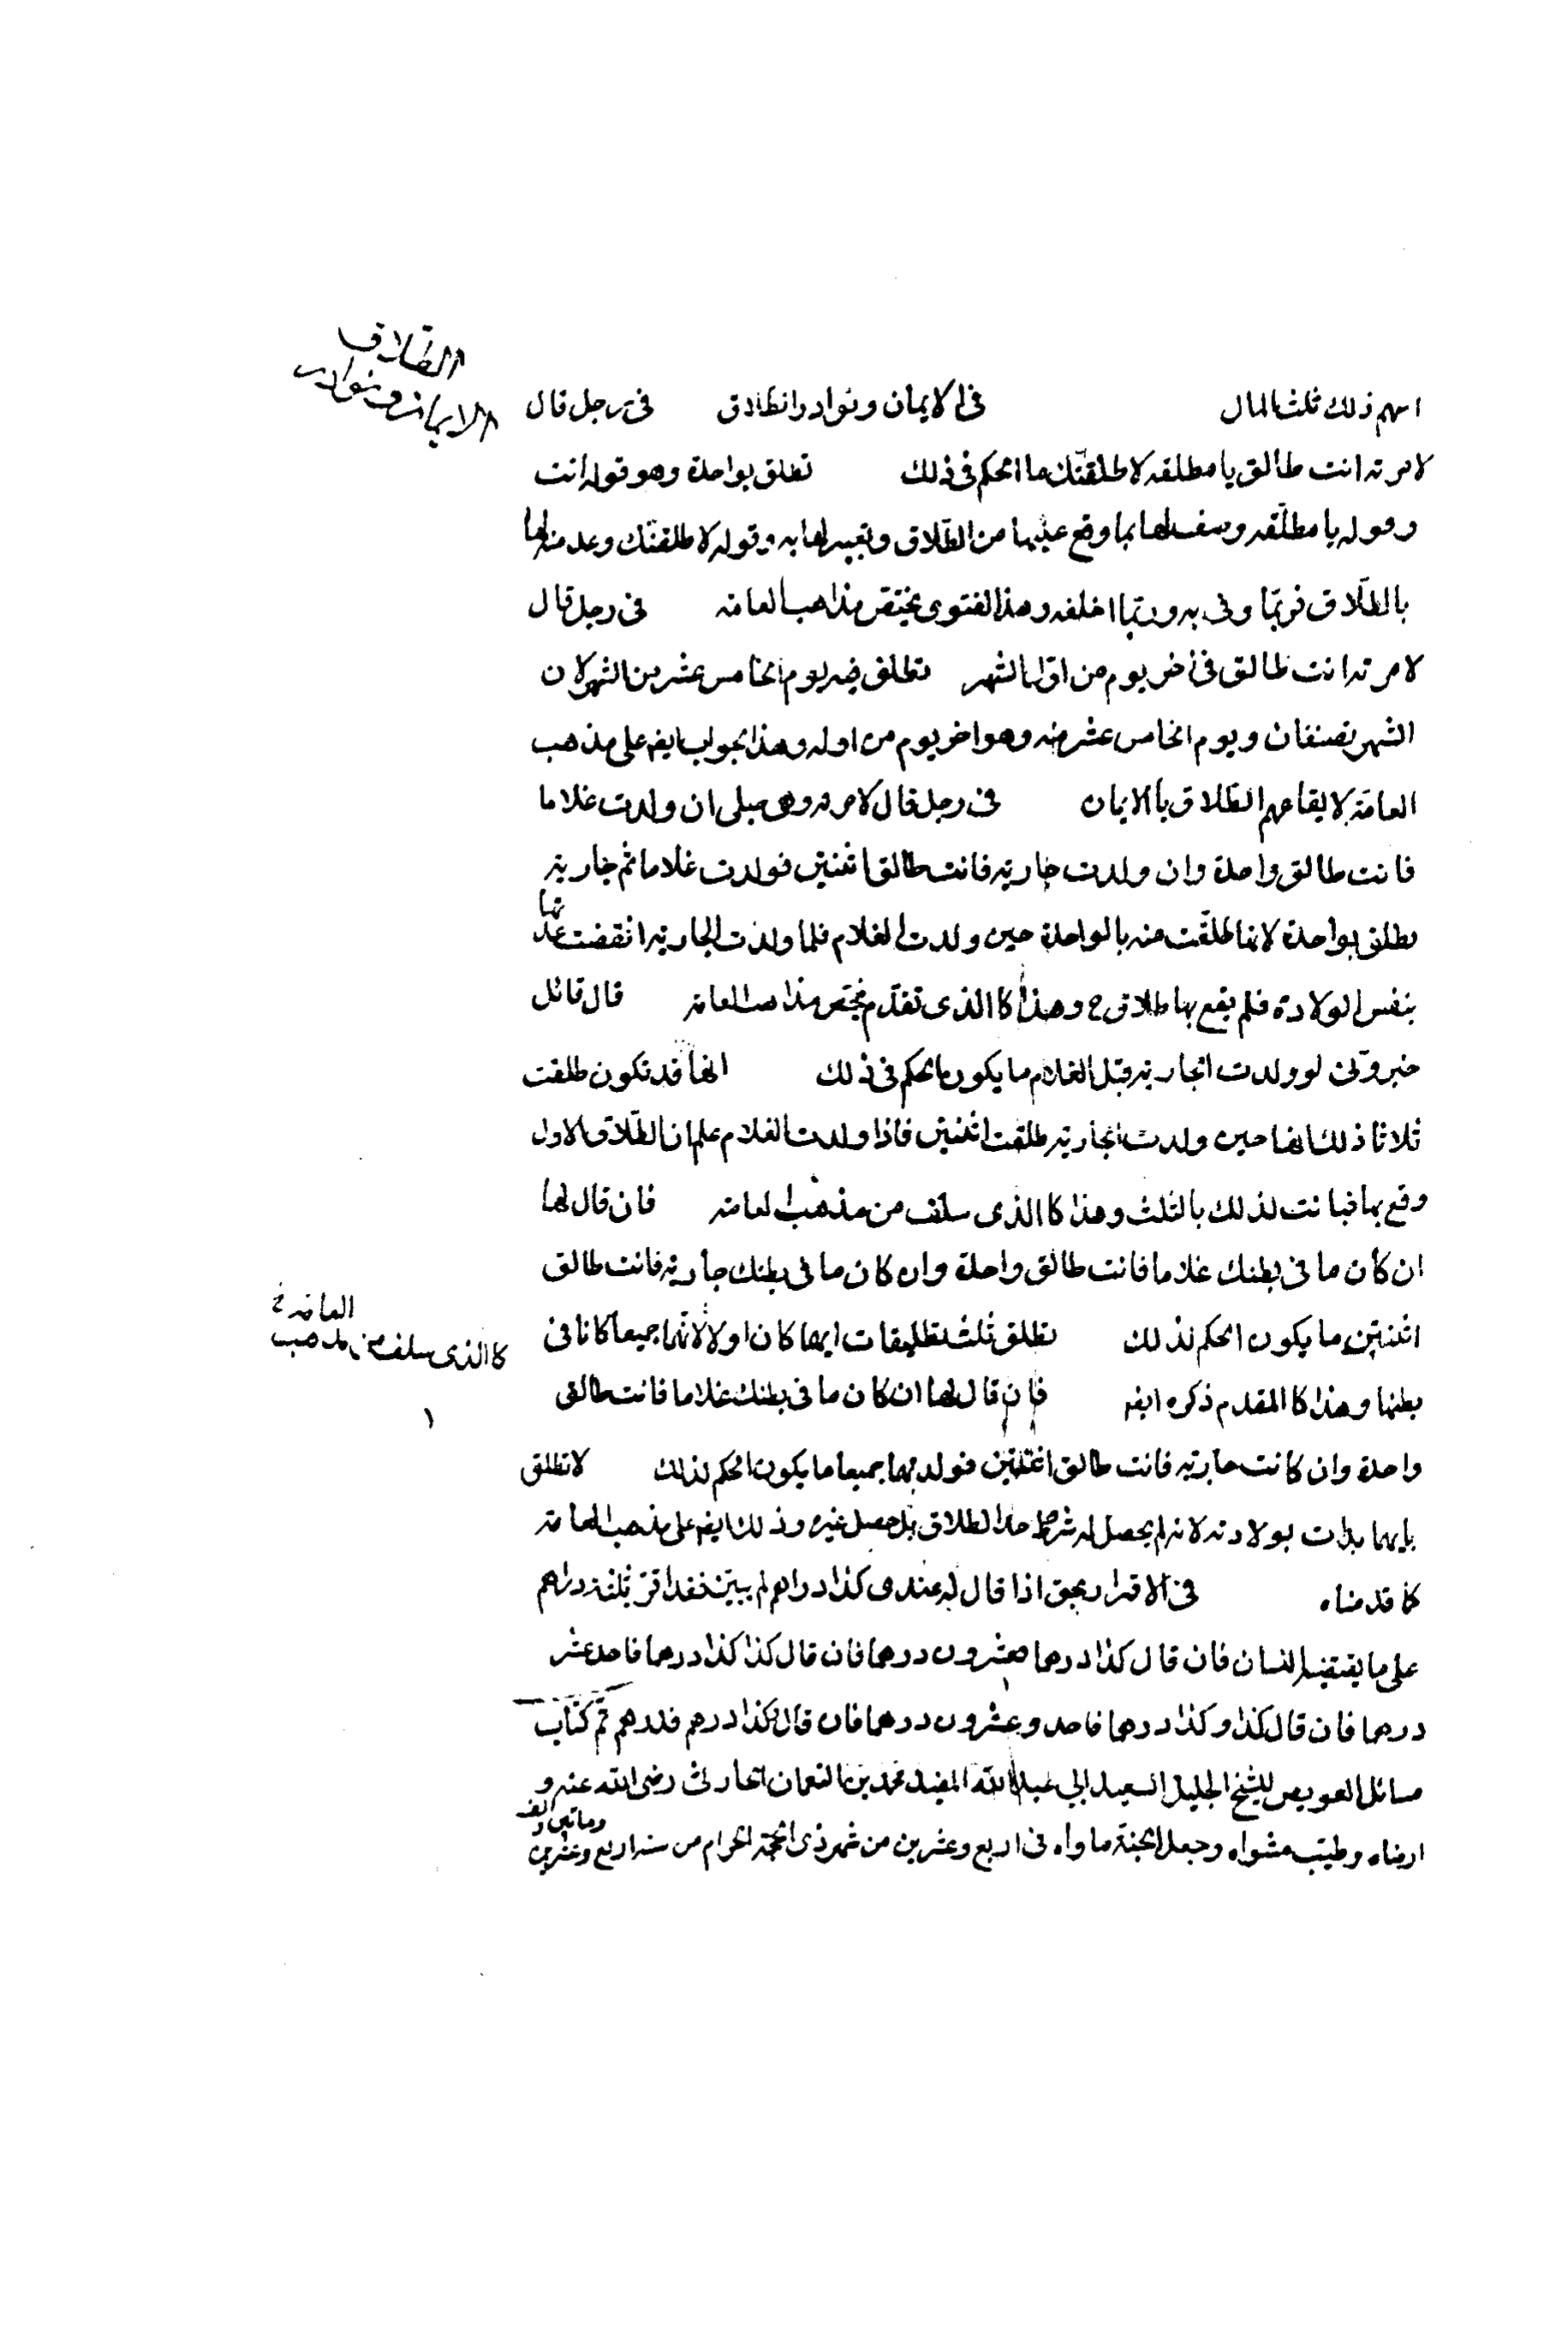 الطلاق
الايمان ونوادر
اسهم ذلك ثلث المال في الايمان ونوادر الطلاق في رجل قال
لامرته انت طالق يا مطلقه لاطلقنّك ما الحكم في ذلك تطلق بواحدة وهو قوله انت
وقوله يا مطلّقه وصف لها بما وقع عليها من الطّلاق وتعيير لها به وقوله لاطلقنّك وعد منه لها
بالطّلاق فربّما وفى به وربّما اخلفه وهذا الفتوى يختص مذاهب العامه في رجل قال
لامرته انت طالق في اخر يوم من اوّل الشهر تطلق فيه يوم الخامس عشر من الشهر لان
الشهر نصفان ويوم الخامس عشر منه وهو اخر يوم من اوله وهذا الجواب ايضه على مذهب
العامّة لايقاعهم الطّلاق بالايمان في رجل قال لامرته وهى حبلى ان ولدت غلاما
فانت طالق واحدة وان ولدت جارية فانت طالق اثنتين فولدت غلاما ثم جارية
تطلق بواحدة لانها طلّقت منه بالواحدة حين ولدت الغلام فلما ولدت الجارية انقضت عدّتها
بنفس الولادة فلم يقع بها طلاق ح وهذا كالذى تقدّم يختص مذاهب العامه قال قائل
خبرونى لو ولدت الجارية قبل الغلام ما يكون الحكم في ذلك انها قد تكون طلقت
ثلاثا ذلك انها حين ولدت الجارية طلقت اثنتين فاذا ولدت الغلام علم ان الطّلاق الاول
وقع بها فبانت لذلك بالثلث وهذا كالذى سلف من مذهب العامه فان قال لها
ان كان ما في بطنك غلاما فانت طالق واحدة وان كان ما في بطنك جارية فانت طالق
اثنتين ما يكون الحكم لذلك تطلق ثلث تطليقات ايهما كان اولا لانّهما جميعا كانا في
العامه خ
كالذى سلف من مذهب
بطنها وهذا كالمقدم ذكره ايضه فان قال لها ان كان ما في بطنك غلاما فانت طالق
واحدة وان كانت جارية فانت طالق اثنتين فولدتهما جميعا ما يكون الحكم لذلك لا تطلق
بايهما بدات بولادته لانه لم يحصل له شرط هذا الطلاق بل حصل غيره وذلك ايضه على مذهب العامه
كما قدمناه في الاقرار بحق اذا قال له عندى كذا دراهم لم يبين فقد اقرّ بثلثة دراهم
على ما يقتضيه اللسان فان قال كذا درهما فعشرون درهما فان قال كذا كذا درهما فاحد عشر
درهما فان قال كذا وكذا درهما فاحد وعشرون درهما فان قال كذا درهم فدرهم تمّ كتاب
مسائل العويص للشيخ الجليل السعيد ابي عبد الله المفيد محمد بن النعمان الحارثى رضى الله عنه و
ارضاه وطيّب مثواه وجعل الجنة ماواه في اربع وعشرين من شهر ذى الحجة الحرام من سنه اربع وعشرين
ومائتين والف